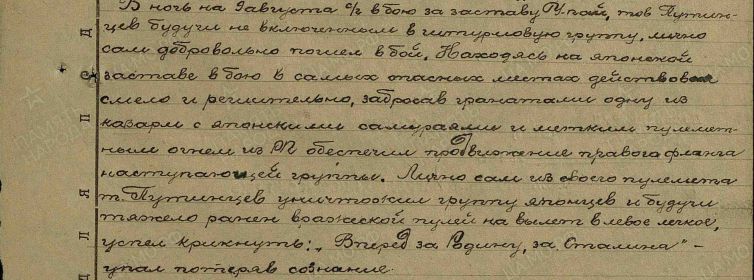 В ночь на 9 августа с/г в бою за заставу Пу-пай, тов Путин-
цев будучи не включенным в штурмовую группу, лично
сам добровольно пошел в бой. Находясь на японской
заставе в бою в самых опасных местах действовал
смело и решительно, забросав гранатами одну из
казарм с японскими самураями и метким пулемет-
ным огнем из РП обеспечил продвижение правого фланга
наступающей группы. Лично сам из своего пулемета
т. Путинцев уничтожил группу японцев и будучи
тяжело ранен вражеской пулей на вылет в левое легкое,
успел крикнуть: „Вперед за Родину, за Сталина" -
упал потеряв сознание.
Д
С
П
Я
Л
Д